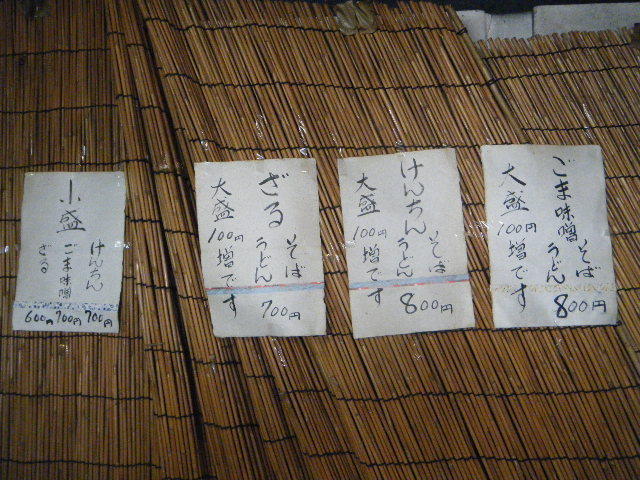 ごま味噌 そば
うどん
800円
大盛 100円 増です
けんちん そば
うどん
800円
大盛 100円 増です
ざる そば
うどん
700円
大盛 100円 増です
小盛
けんちん 700円
ごま味噌 700円
ざる 600円